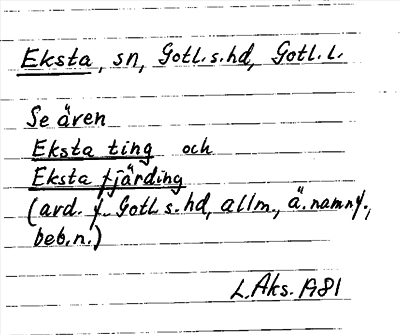 Eksta, sn, Gotl.s.hd, Gotl.l.
Se även
Eksta ting och
Eksta fjärding
(avd. f. Gotl.s.hd, allm., ä.namnf.,
beb.n.)
L.Aks. 1981